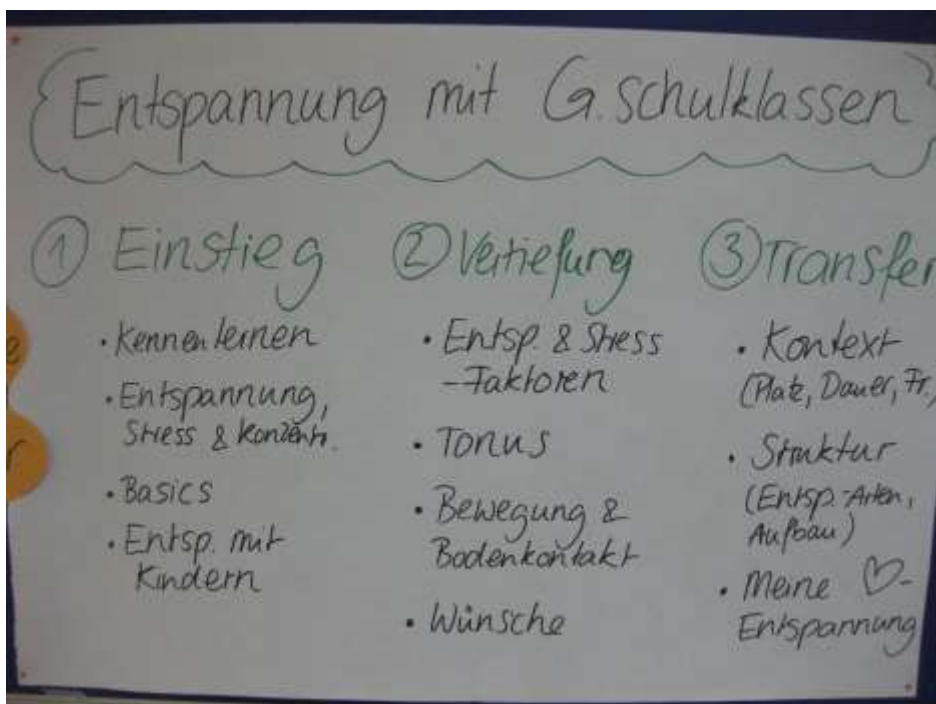 Entspannung mit G.schulklassen
① Einstieg
· Kennenlernen
· Entspannung,
Stress & Konzentr.
· Basics
· Entsp. mit
Kindern
② Vertiefung
· Entsp. & Stress
-Faktoren
· Tonus
· Bewegung &
Bodenkontakt
· Wünsche
③ Transfer
· Kontext
(Platz, Dauer, Fr.)
· Struktur
(Entsp.-Arten,
Aufbau)
· Meine ♡-
Entspannung
e
r